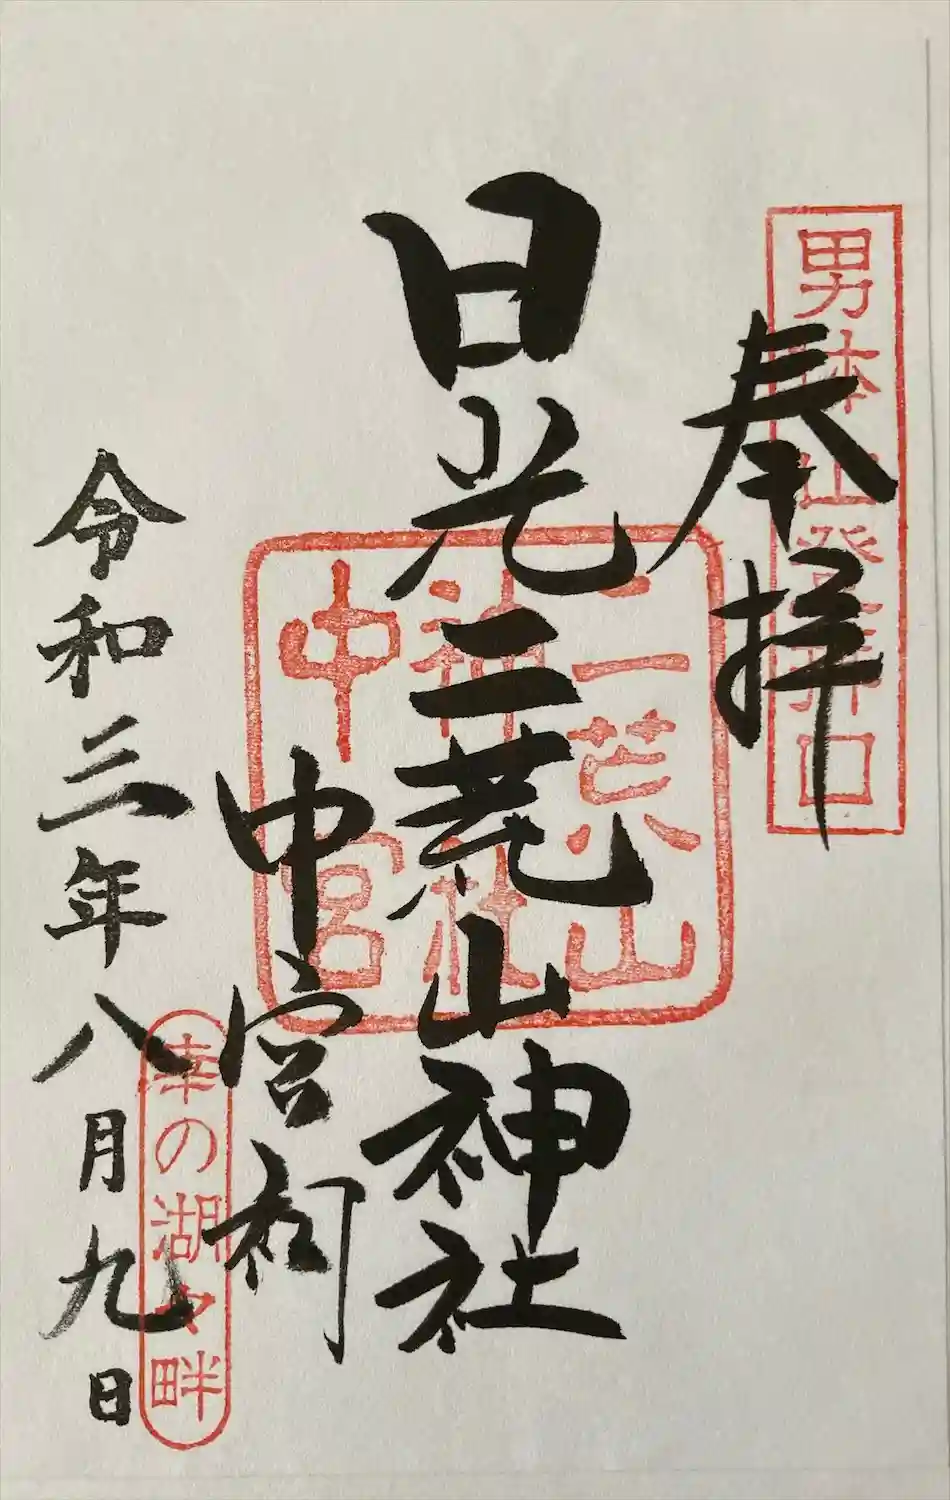 男体山登拝口
奉拝
日光二荒山神社
二荒山
神社
中宮
中宮祠
幸の湖々畔
令和三年八月九日